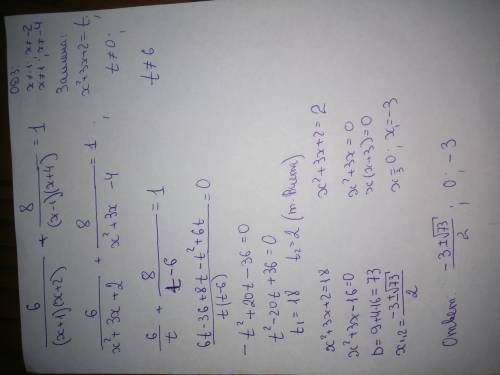 6/((x+1)(x+2)) + 8/((x-1)(x+4)) = 1
6/(x²+3x+2) + 8/(x²+3x-4) = 1
6/t + 8/(t-6) = 1
(6t-36+8t-t²+6t)/(t(t-6)) = 0
-t²+20t-36=0
t²-20t+36=0
t₁=18 t₂=2 (т. Виета)
x²+3x+2=18
x²+3x-16=0
D=9+4·16=73
x₁,₂=(-3±√73)/2
x²+3x+2=2
x²+3x=0
x(x+3)=0
x₃=0; x₄=-3
Ответ: (-3±√73)/2 ; 0; -3
ОДЗ:
x≠-1; x≠-2
x≠1; x≠-4
Замена:
x²+3x+2=t;
t≠0;
t≠6